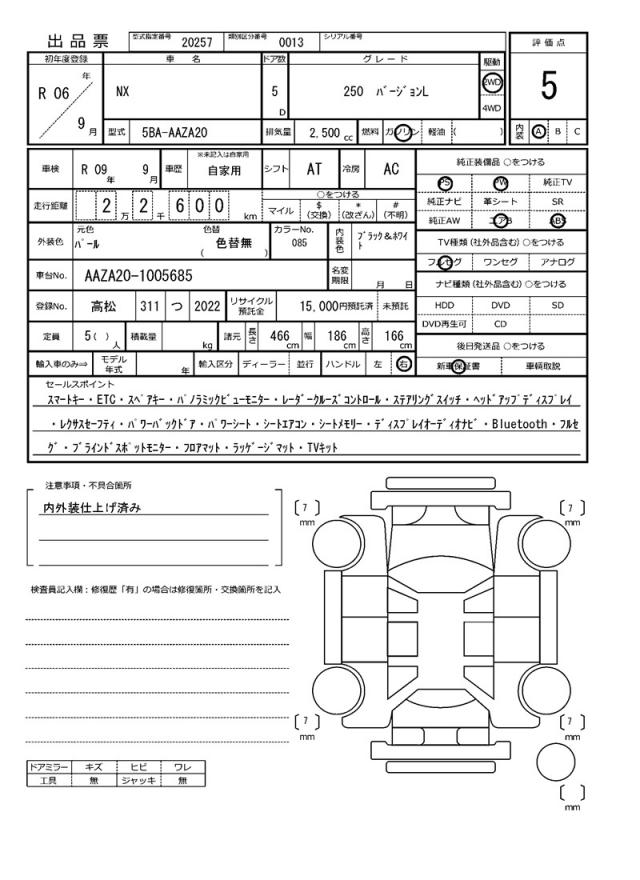 出品票 型式指定番号 20257 類別区分番号 0013 シリアル番号
評価点
初年度登録 車名 ドア数 グレード 駆動
R 06 年 9 月 NX 5 D 250 バージョンL 2WD 4WD
5
型式 5BA-AAZA20 排気量 2,500 cc 燃料 ガソリン 軽油 ( )
内装 A B C
車検 R 09 年 9 月 車歴 ※未記入は自家用 自家用 シフト AT 冷房 AC
純正装備品 ○をつける
PS PW 純正TV
純正ナビ 革シート SR
純正AW エアB ABS
走行距離 2 万 2 千 6 0 0 km
○をつける
マイル $ (交換) * (改ざん) # (不明)
外装色 元色 パール 色替 ( 色替無 ) カラーNo. 085 内装色 ブラック&ホワイト
TV種類 (社外品含む) ○をつける
フルセグ ワンセグ アナログ
車台No. AAZA20-1005685 名変期限 月 日
ナビ種類 (社外品含む) ○をつける
HDD DVD SD
DVD再生可 CD
登録No. 高松 311 つ 2022 リサイクル預託金 15,000円預託済 未預託
定員 5( ) 人 積載量 kg 諸元 長さ 466 cm 幅 186 cm 高さ 166 cm
後日発送品 ○をつける
新車保証書 車輌取説
輸入車のみ⇒ モデル年式 年 輸入区分 ディーラー ・ 並行 ハンドル 左 右
セールスポイント
スマートキー・ETC・スペアキー・パノラミックビューモニター・レーダークルーズコントロール・ステアリングスイッチ・ヘッドアップディスプレイ
・レクサスセーフティ・パワーバックドア・パワーシート・シートエアコン・シートメモリー・ディスプレイオーディオナビ・Bluetooth・フルセ
グ・ブラインドスポットモニター・フロアマット・ラッゲージマット・TVキット
注意事項・不具合箇所
内外装仕上げ済み
検査員記入欄：修復歴「有」の場合は修復箇所・交換箇所を記入
〔 7 〕 mm
〔 7 〕 mm
〔 7 〕 mm
〔 7 〕 mm
〔 〕 mm
ドアミラー キズ ヒビ ワレ
工具 無 ジャッキ 無